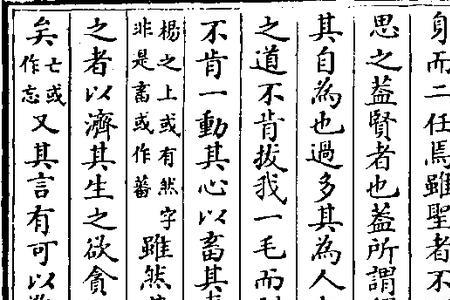 身而二任焉雖聖者不
思之蓋賢者也蓋所謂
其自為也過多其為人
之道不肯拔我一毛而
不肯一動其心以畜其
楊之上或有然字
非是畜或作蓄
雖然
之者以濟其生之欲貪
矣
亡或
作忘
又其言有可以